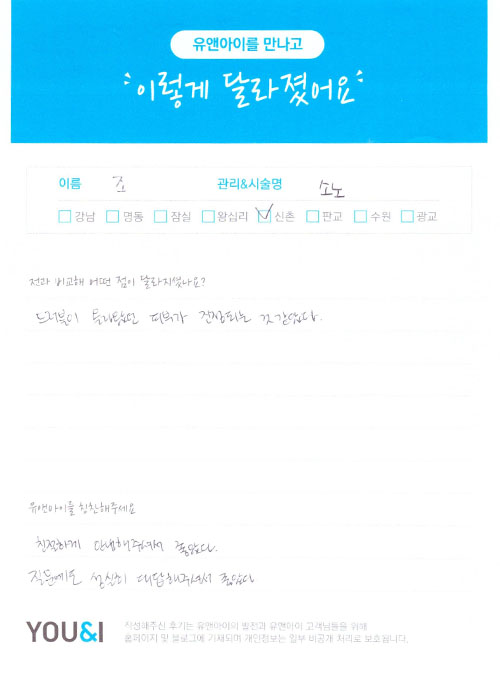 유앤아이를 만나고
이렇게 달라졌어요
이름 조 관리&시술명 소노
강남 명동 잠실 왕십리 신촌 판교 수원 광교
전과 비교해 어떤 점이 달라지셨나요?
피부가 진정되는 것 같았다.
유앤아이를 칭찬해주세요
친절하게 안내해주셔서 좋았다.
질문에도 성실히 대답해주셔서 좋았다
YOU&I
작성해주신 후기는 유앤아이의 발전과 유앤아이 고객님들을 위해
홈페이지 및 블로그에 기재되며 개인정보는 일부 비공개 처리로 보호됩니다.